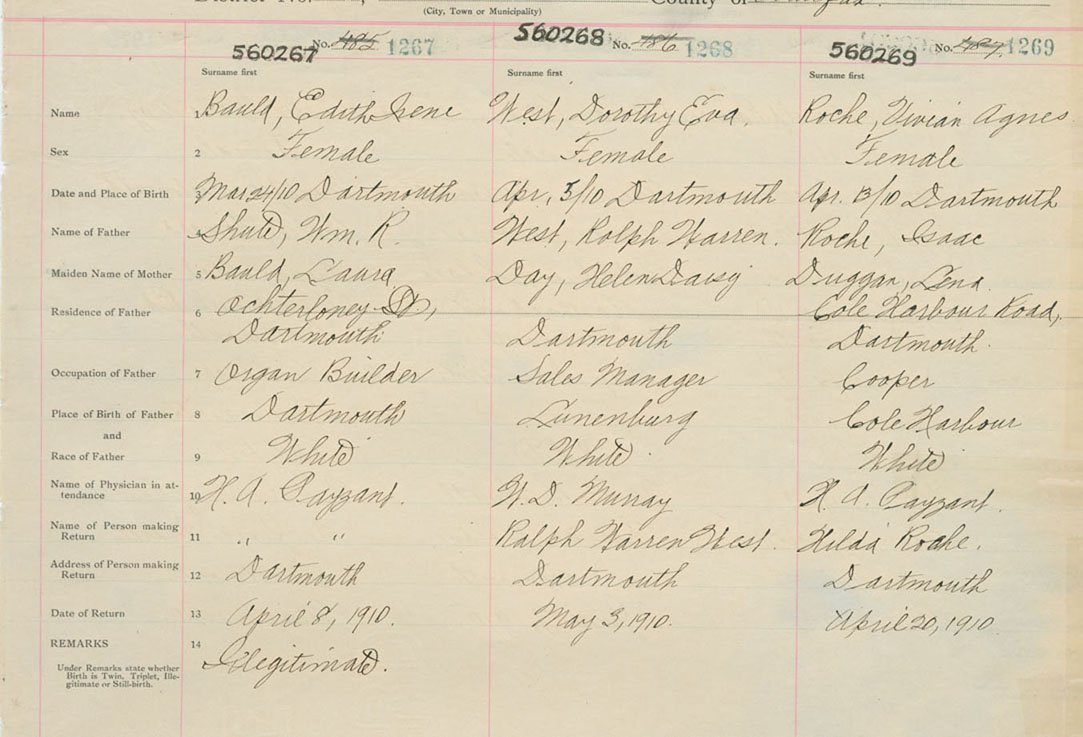 County of
(City, Town or Municipality)
560267 No. 485 1267 560268 No. 486 1268 560269 No. 487 1269
Surname first Surname first Surname first
Name 1 Bauld, Edith Irene West, Dorothy Eva. Roche, Vivian Agnes
Sex 2 Female Female Female
Date and Place of Birth 3 Mar 24/10 Dartmouth Apr. 5/10 Dartmouth Apr. 13/10 Dartmouth
Name of Father 4 Shute, Wm. R. West, Ralph Warren. Roche, Isaac
Maiden Name of Mother 5 Bauld, Laura Day, Helen Daisy Duggan, Lena.
Residence of Father 6 Ochterloney St, Cole Harbour Road,
Dartmouth Dartmouth Dartmouth.
Occupation of Father 7 Organ Builder Sales Manager Cooper
Place of Birth of Father 8 Dartmouth Lunenburg Cole Harbour
and
Race of Father 9 White White White
Name of Physician in at-
tendance 10 H. A. Payzant. W. D. Murray H. A. Payzant.
Name of Person making
Return 11 " " Ralph Warren West. Hilda Roche.
Address of Person making
Return 12 Dartmouth Dartmouth Dartmouth
Date of Return 13 April 8, 1910. May 3, 1910. April 20, 1910
REMARKS 14
Illegitimate.
Under Remarks state whether
Birth is Twin, Triplet, Ille-
gitimate or Still-birth.